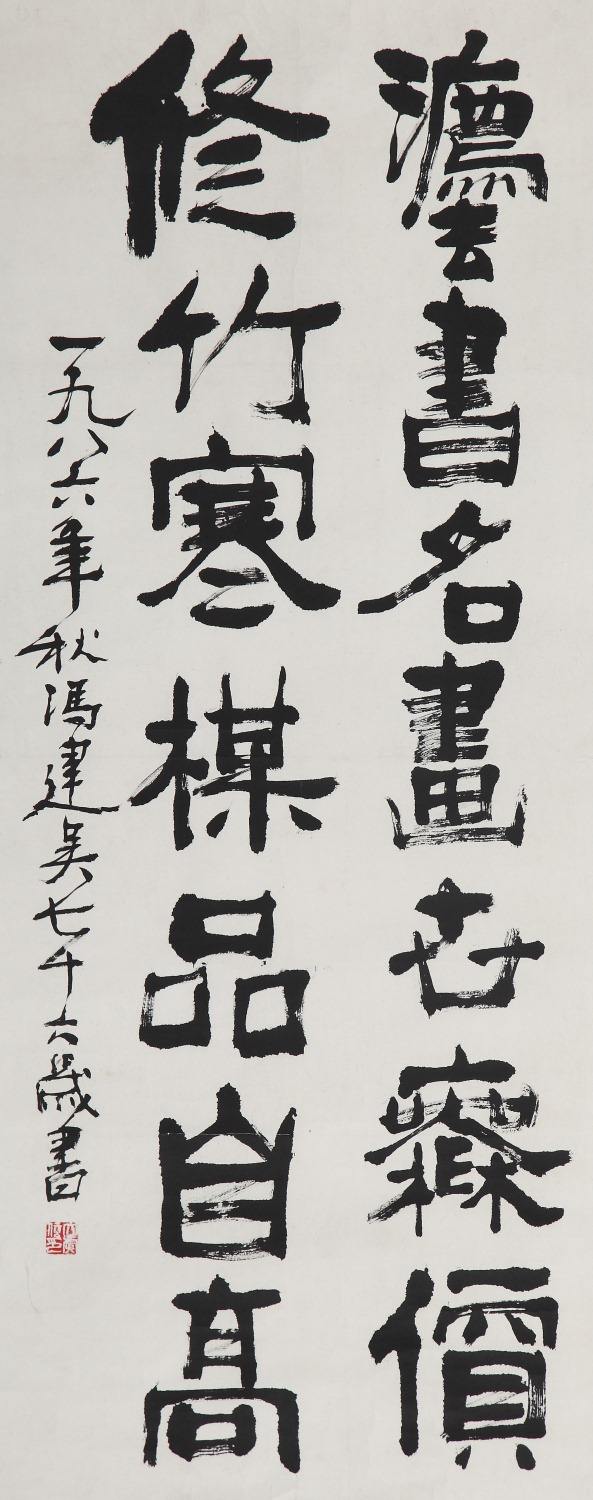 灋書名畫世橆價
修竹寒楳品自高
一九八六年秋冯建吴七十六歲書